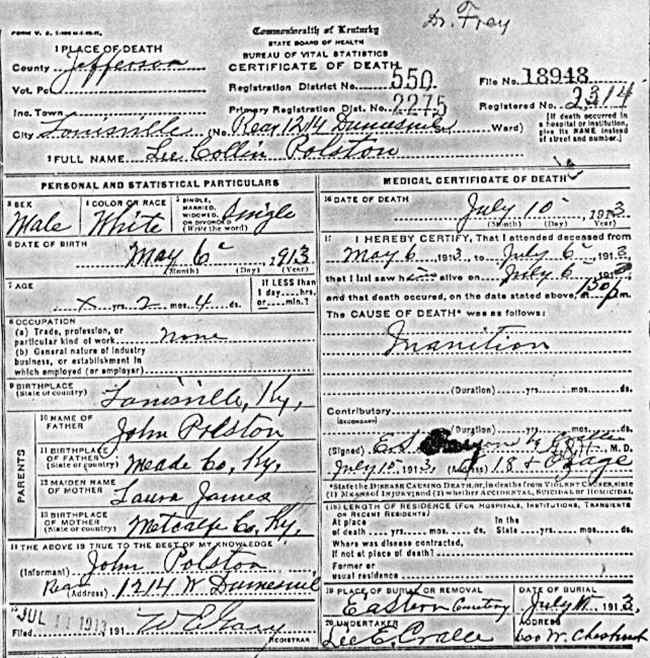 Dr. Frey
Commonwealth of Kentucky
STATE BOARD OF HEALTH
BUREAU OF VITAL STATISTICS
CERTIFICATE OF DEATH
1 PLACE OF DEATH
County Jefferson
Vot. Pc
Inc. Town
City Louisville (No. Rear 1214 Dumesnil Ward)
Registration District No. 550
Primary Registration Dist. No. 2275
File No. 18948
Registered No. 2314
[If death occurred in a hospital or institution, give its NAME instead of street and number.]
2 FULL NAME Lee Collin Polston
PERSONAL AND STATISTICAL PARTICULARS
3 SEX Male
4 COLOR OR RACE White
5 SINGLE, MARRIED, WIDOWED, OR DIVORCED (Write the word) Single
6 DATE OF BIRTH May 6 1913
(Month) (Day) (Year)
7 AGE x yrs. 2 mos. 4 ds.
If LESS than 1 day,....hrs. or....min.?
8 OCCUPATION
(a) Trade, profession, or particular kind of work None
(b) General nature of industry business, or establishment in which employed (or employer)
9 BIRTHPLACE (State or country) Louisville, Ky,
PARENTS
10 NAME OF FATHER John Polston
11 BIRTHPLACE OF FATHER (State or country) Meade Co, Ky,
12 MAIDEN NAME OF MOTHER Laura James
13 BIRTHPLACE OF MOTHER (State or country) Metcalfe Co, Ky,
14 THE ABOVE IS TRUE TO THE BEST OF MY KNOWLEDGE
(Informant) John Polston
(Address) Rear 1214 W Dumesnil
15 JUL 11 1913
Filed 191
REGISTRAR
MEDICAL CERTIFICATE OF DEATH
16 DATE OF DEATH
July 10 1913
(Month) (Day) (Year)
17 I HEREBY CERTIFY, That I attended deceased from
May 6 1913, to July 6 1913,
that I last saw h alive on July 6 1913
and that death occured, on the date stated above, at 130 pm.
The CAUSE OF DEATH* was as follows:
Inanition
(Duration) yrs. mos. ds.
Contributory
(SECONDARY)
(Duration) yrs. mos. ds.
(Signed) E.S. M. D.
July 10, 1913, (Address) 18 & Osage
*State the DISEASE CAUSING DEATH, or, in deaths from VIOLENT CAUSES, state (1) MEANS OF INJURY; and (2) whether ACCIDENTAL, SUICIDAL or HOMICIDAL.
18 LENGTH OF RESIDENCE (FOR HOSPITALS, INSTITUTIONS, TRANSIENTS OR RECENT RESIDENTS)
At place of death yrs. mos. ds. In the State yrs. mos. ds.
Where was disease contracted, If not at place of death?
Former or usual residence
19 PLACE OF BURIAL OR REMOVAL Eastern Cemetery
DATE OF BURIAL July 11 1913,
20 UNDERTAKER Lee E. Cralle
ADDRESS 600 W. Chestnut